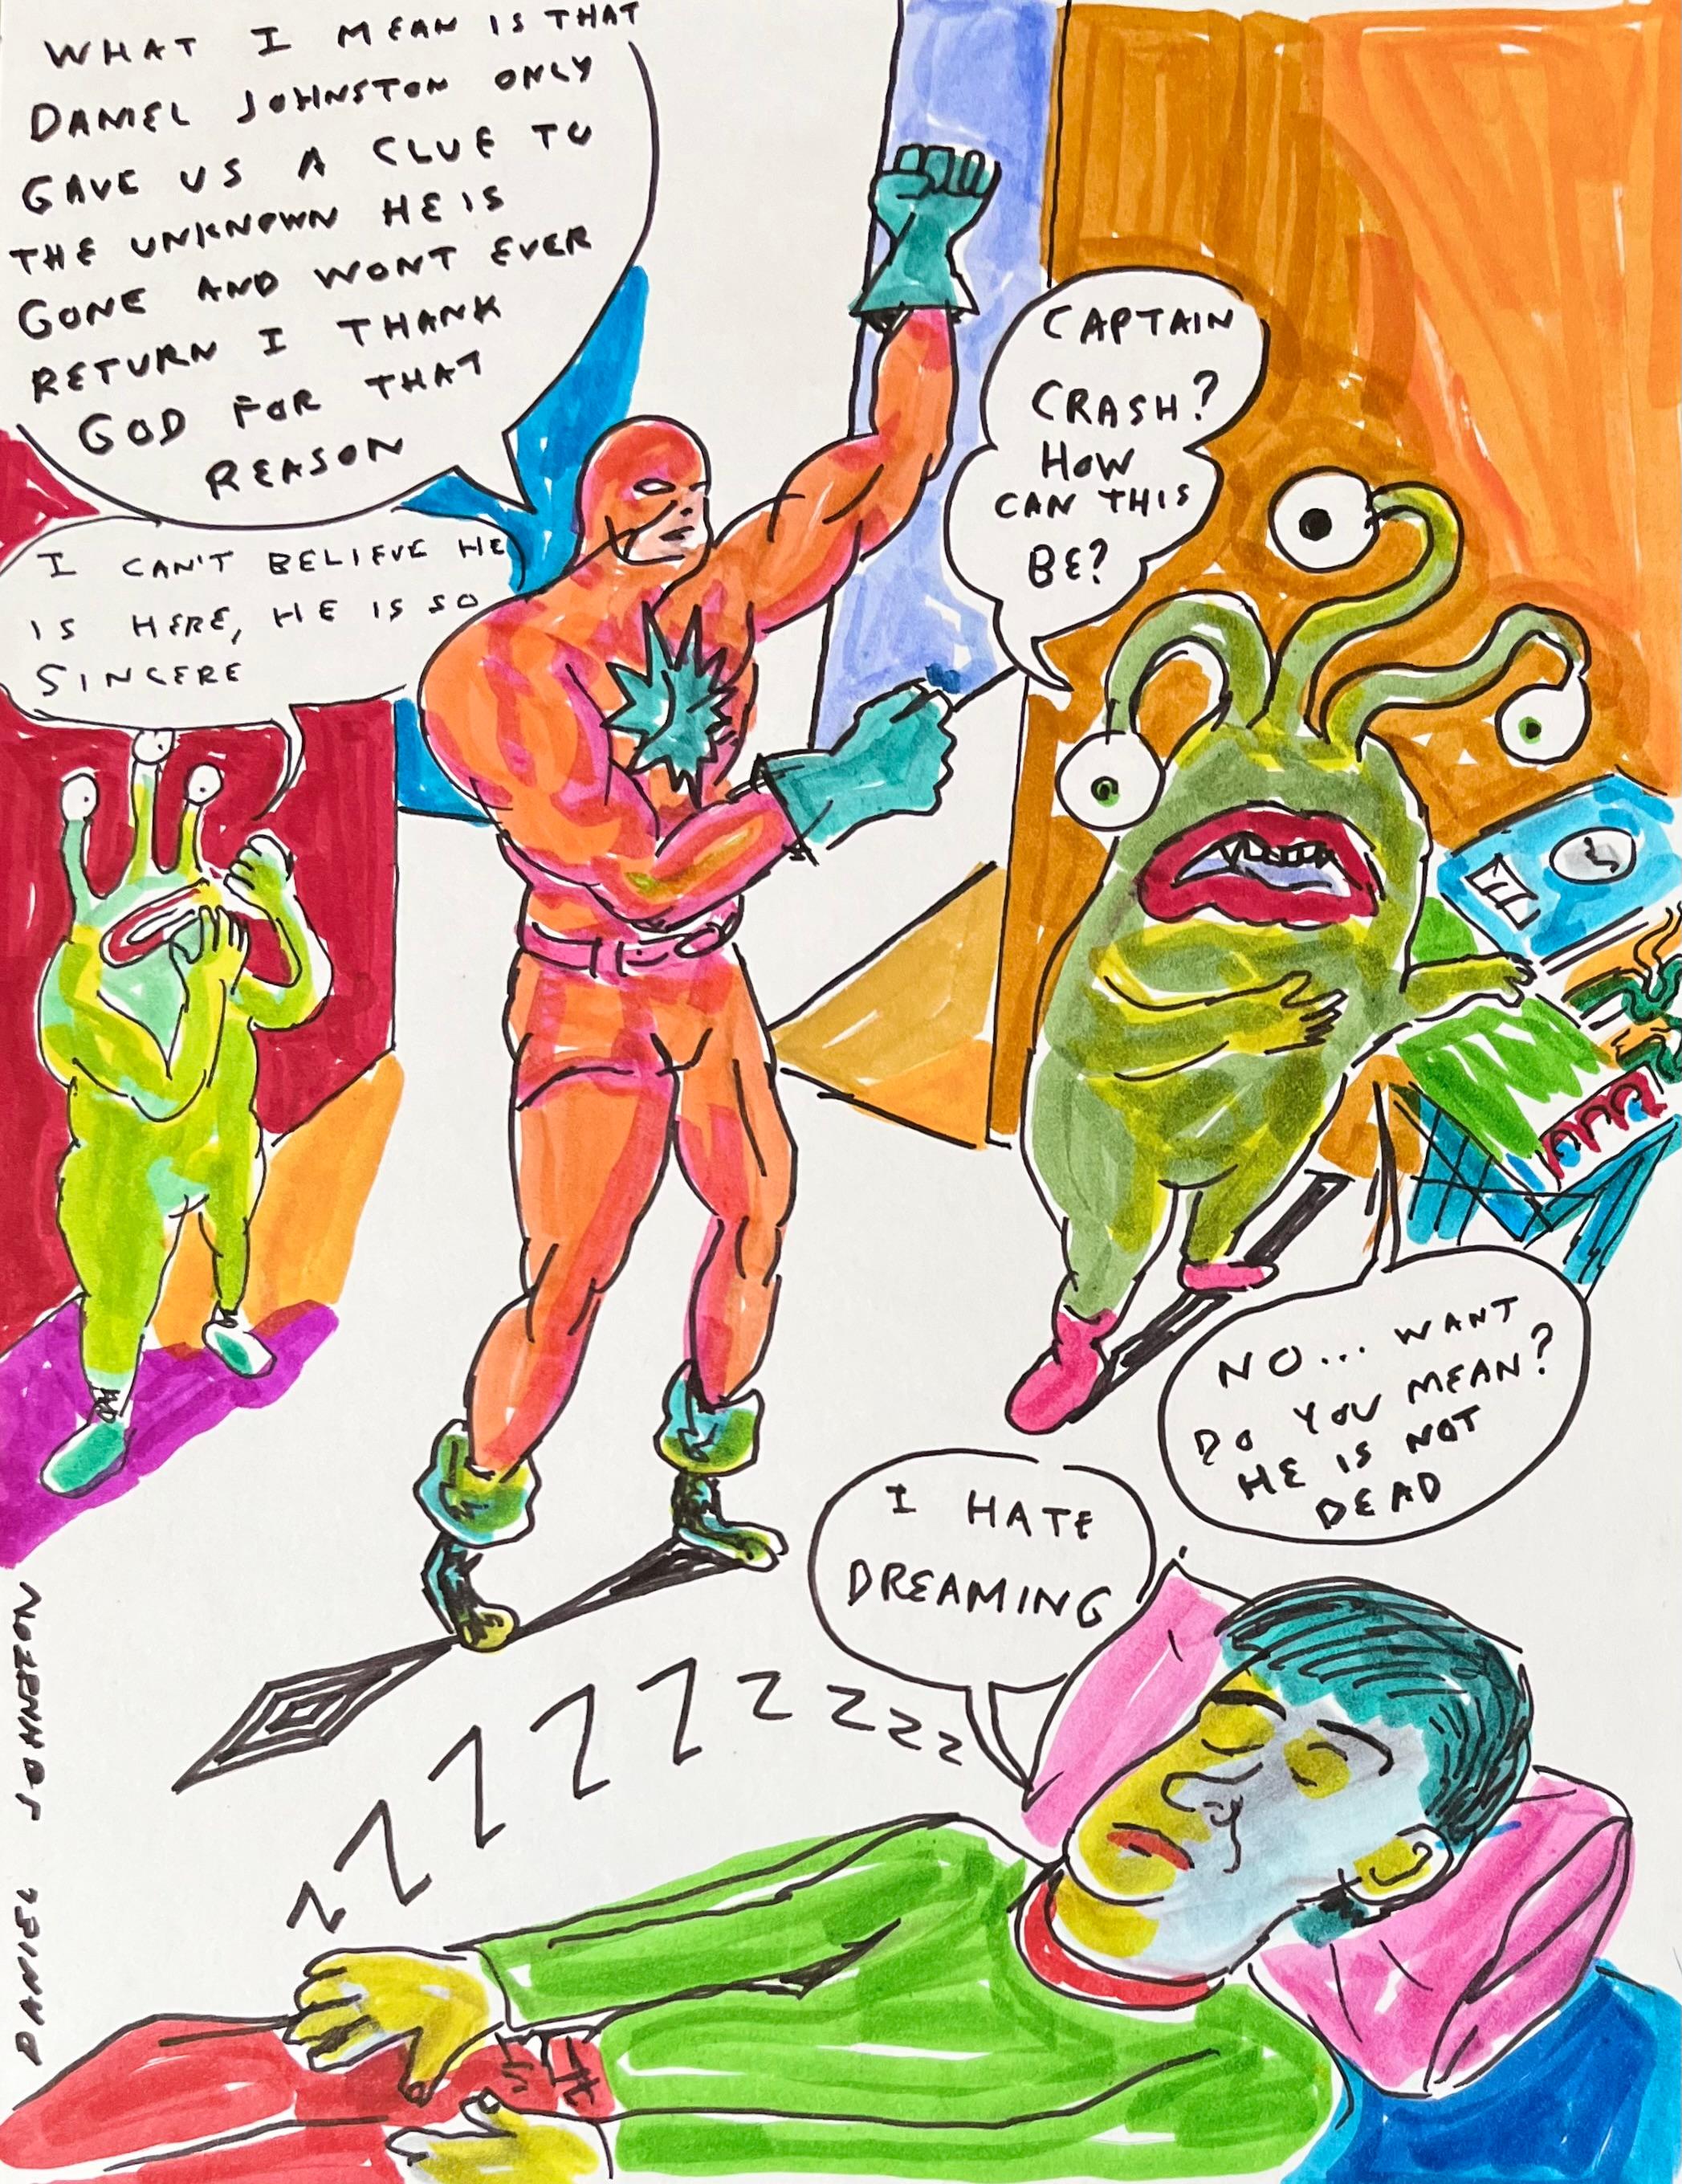 WHAT I MEAN IS THAT
DANIEL JOHNSTON ONLY
GAVE US A CLUE TO
THE UNKNOWN HE IS
GONE AND WONT EVER
RETURN I THANK
GOD FOR THAT
REASON
I CAN'T BELIEVE HE
IS HERE, HE IS SO
SINCERE
CAPTAIN
CRASH?
HOW
CAN THIS
BE?
NO... WANT
DO YOU MEAN?
HE IS NOT
DEAD
I HATE
DREAMING
ZZZZZZZZZZ
DANIEL JOHNSTON